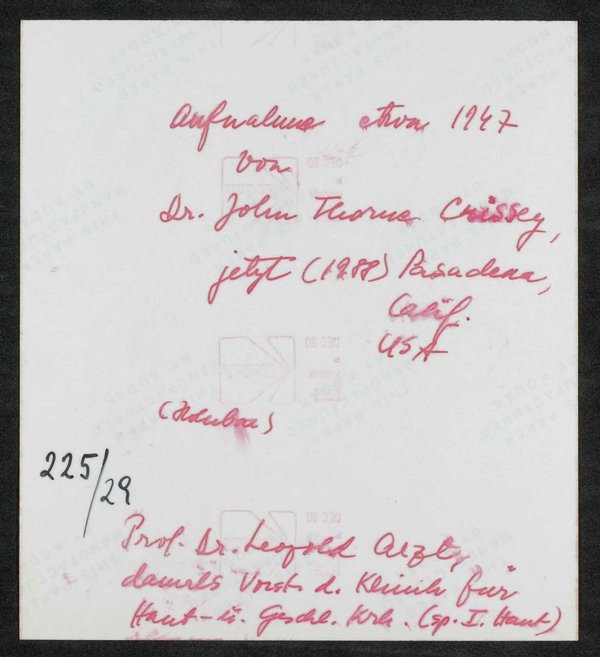 Aufnahme etwa 1947
von
Dr. John Thorne Crissey,
jetzt (1988) Pasadena,
Calif.
USA
(Holubar)
225/29
Prof. Dr. Leopold Arzt,
damals Vorst. d. Klinik für
Haut- u. Geschl. Krh. (sp. I. Haut)
DEC 80
DEC 80
DEC 80